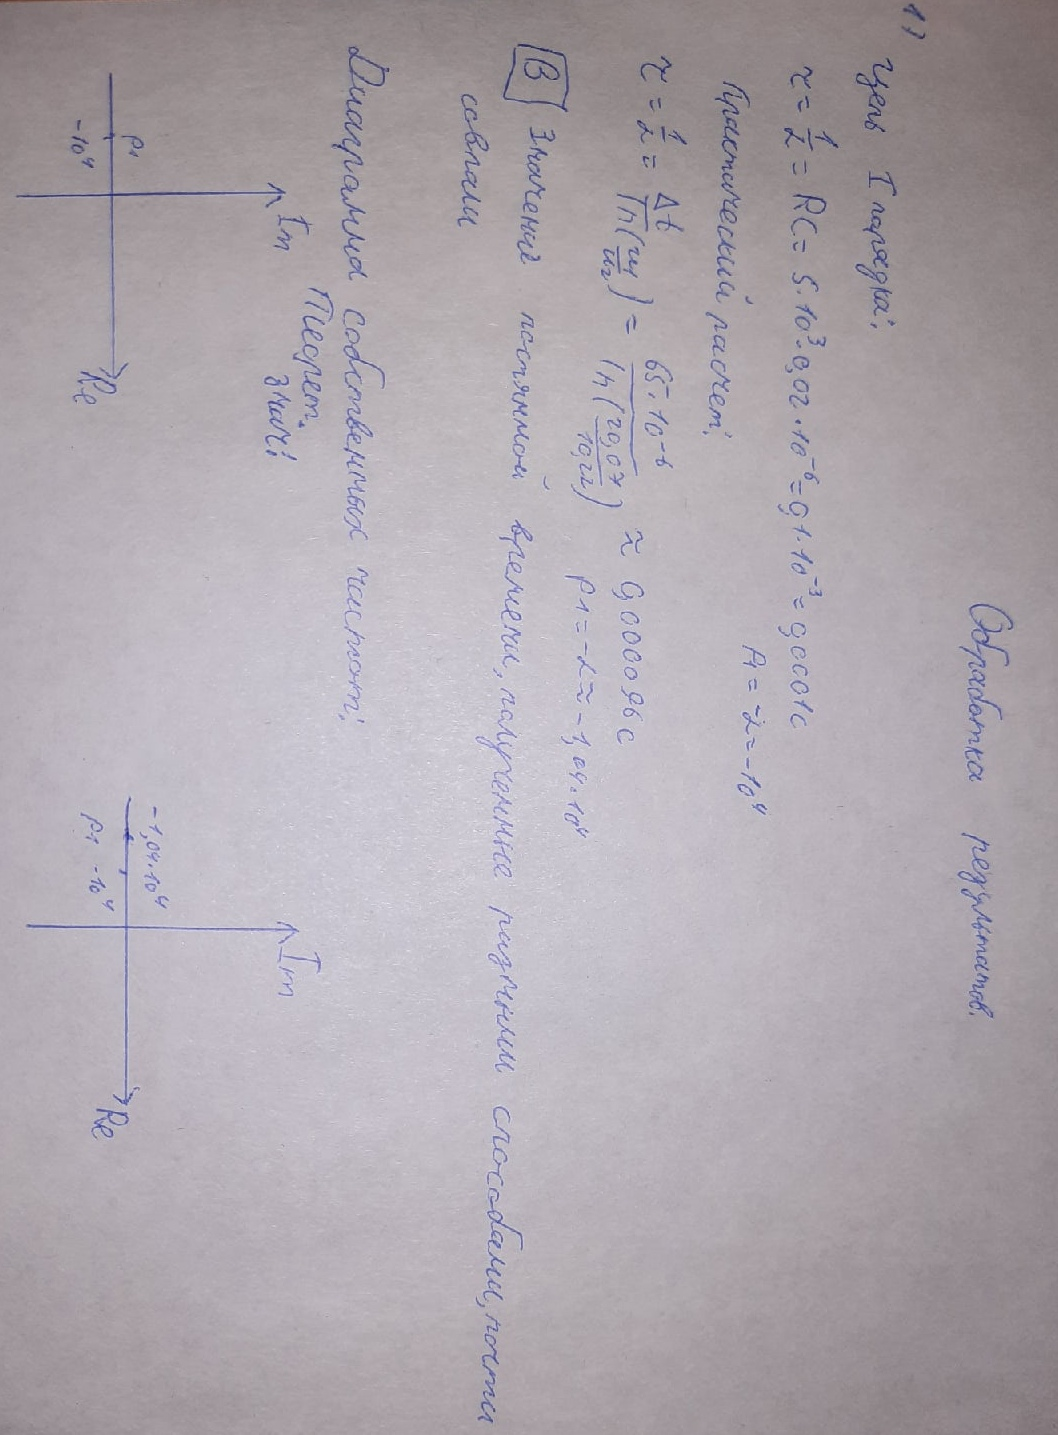 Обработка результатов.
1) Цепь I порядка:
τ = 1/α = RC = 5·10³·0,02·10⁻⁶ = 0,1·10⁻³ = 0,0001с
p₁ = -α = -10⁴
Практический расчет:
τ = 1/α = Δt/ln(u₁/u₂) = 65·10⁻⁶/ln(20,07/10,22) ≈ 0,000096с
p₁ = -α ≈ -1,04·10⁴
В Значения постянной времени, полученные разными способами, почти
совпали
Диаграмма собственных частот:
Теорет.
знач:
Im
p₁
-10⁴
Re
Im
-1,04·10⁴
p₁ -10⁴
Re